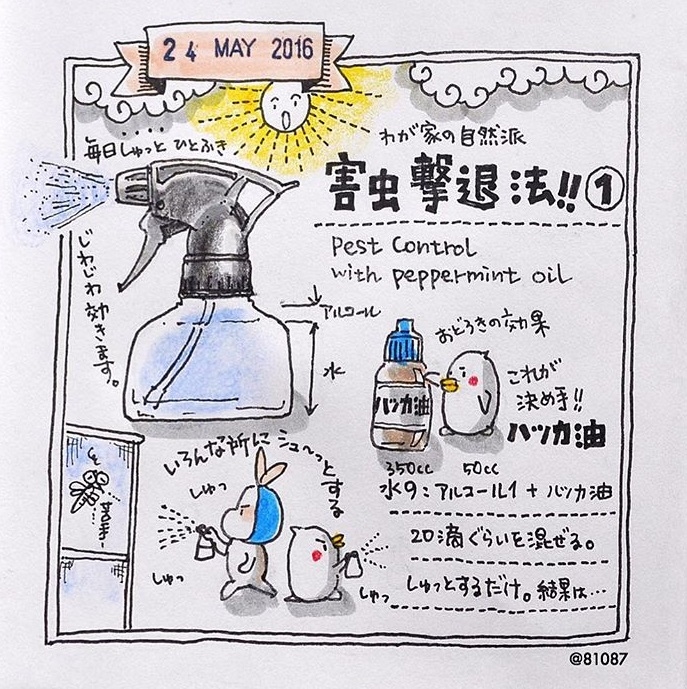 24 MAY 2016
毎日しゅっと ひとふき
わが家の自然派
害虫撃退法!!①
Pest Control
with peppermint oil
じわじわ効きます。
アルコール
水
おどろきの効果
これが
決め手!!
ハッカ油
ハッカ油
いろんな所にシュ〜っとする
しゅっ
しゅっ
しゅっ
350cc 50cc
水9:アルコール1+ハッカ油
20滴ぐらいを混ぜる。
しゅっとするだけ。結果は…
@81087